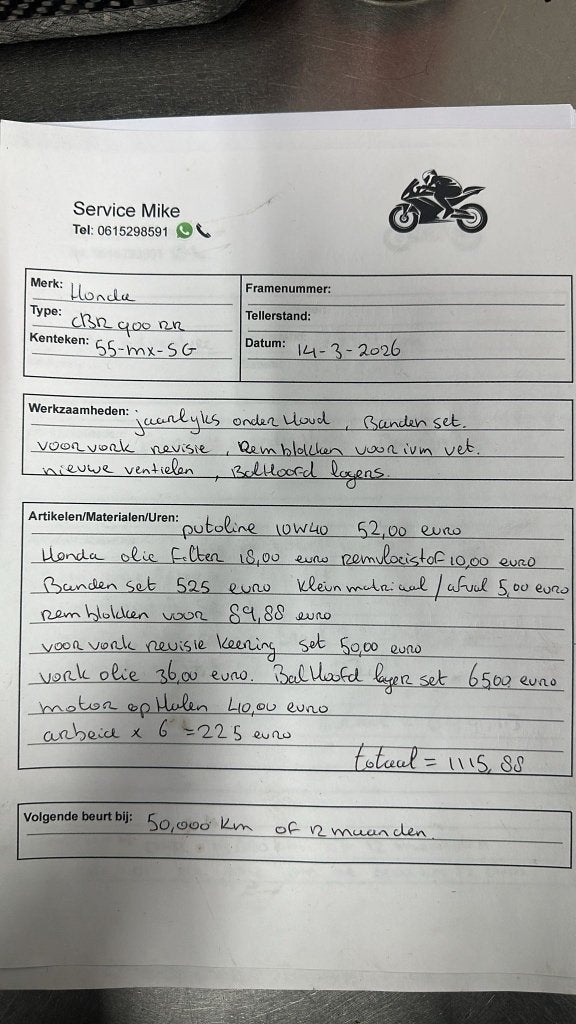 Service Mike
Tel: 0615298591
Merk: Honda
Type: CBR 900 RR
Kenteken: 55-MX-SG
Framenummer:
Tellerstand:
Datum: 14-3-2026
Werkzaamheden: jaarlyks onderHoud, Banden set.
voorvork revisie, Remblokken voor ivm vet.
nieuwe ventielen, BalHoofd lagers.
Artikelen/Materialen/Uren: putoline 10W40 52,00 euro
Honda olie Filter 18,00 euro remvloeistof 10,00 euro
Banden set 525 euro klein matriaal / afval 5,00 euro
remblokken voor 89,88 euro
voorvork revisie keering set 50,00 euro
vork olie 36,00 euro. BalHoofd lager set 65,00 euro
motor opHalen 40,00 euro
arbeid x 6 = 225 euro
totaal = 1115,88
Volgende beurt bij: 50,000 km of 12 maanden.